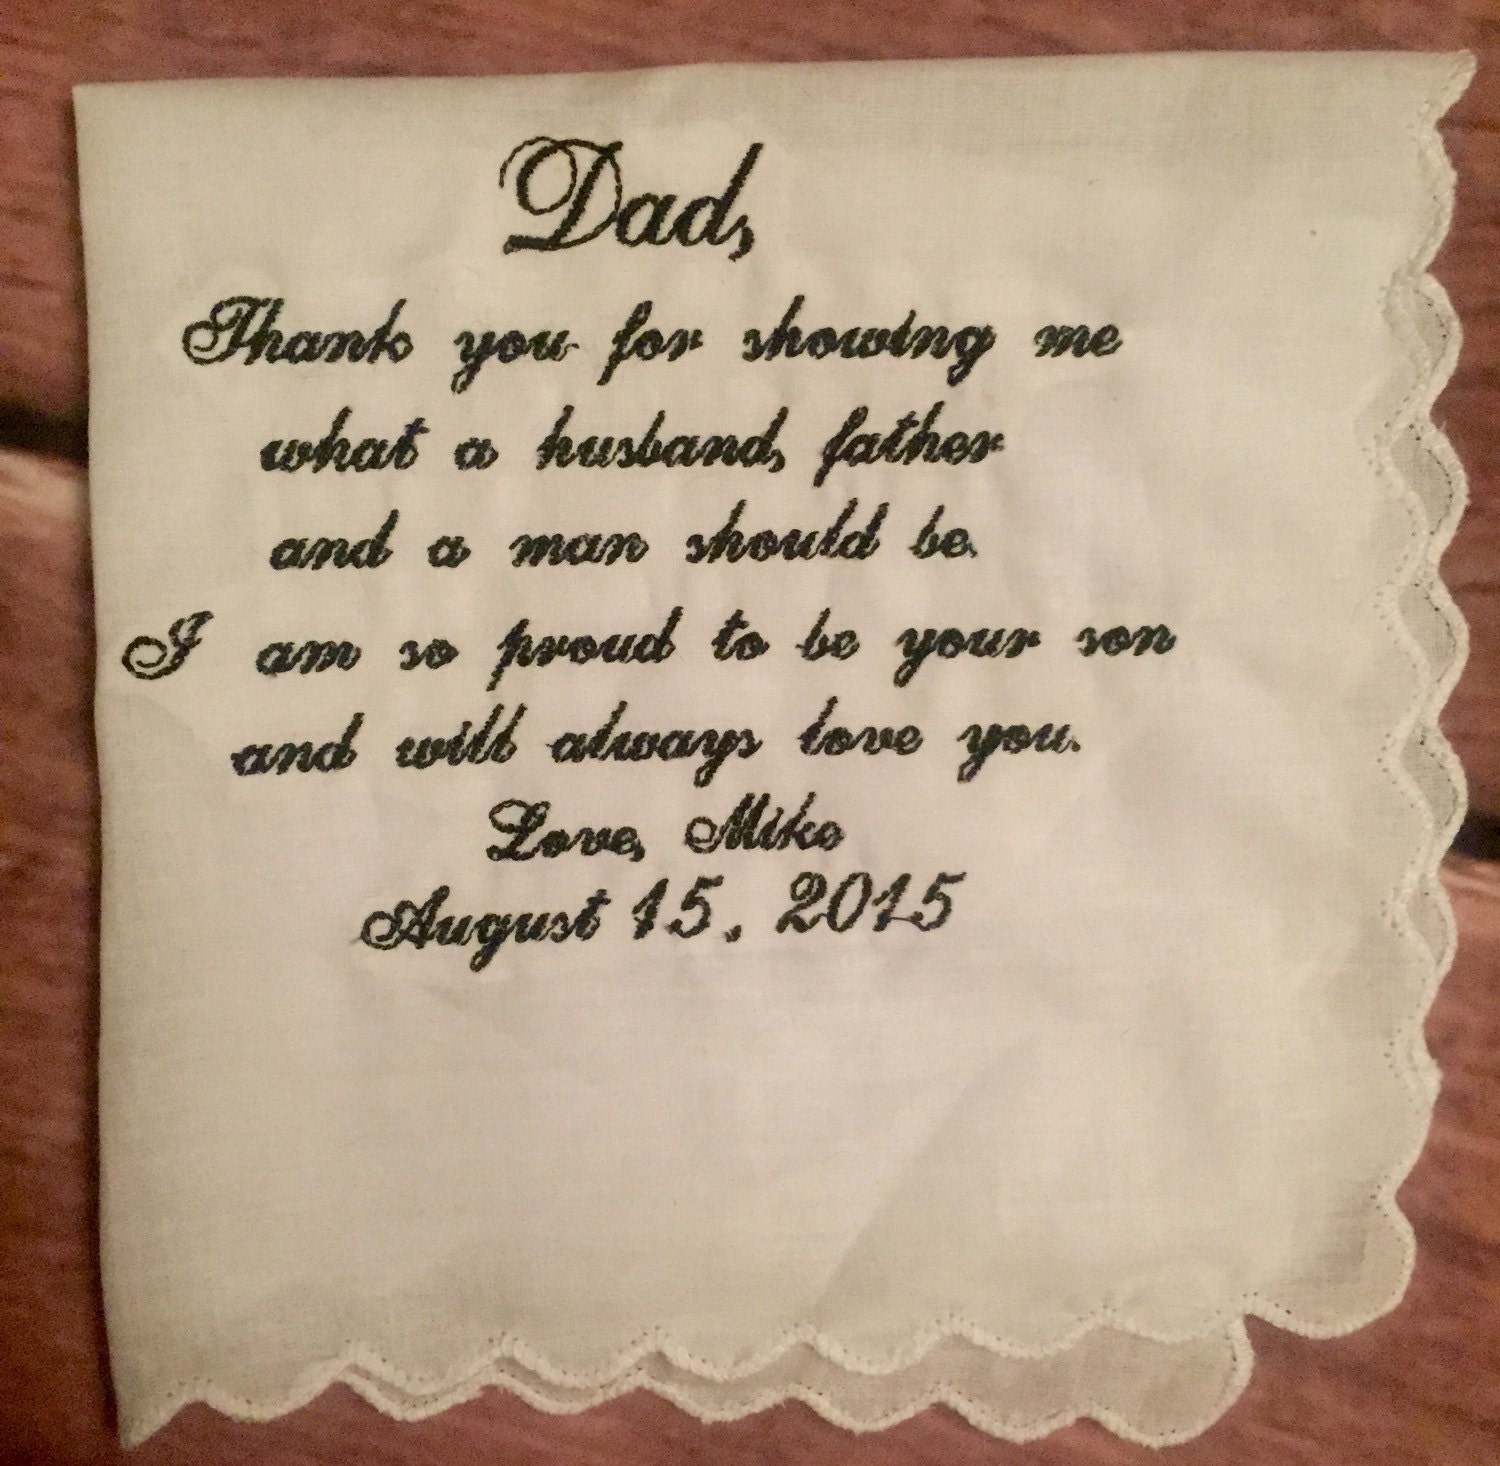 Dad,
Thank you for showing me
what a husband, father
and a man should be.
I am so proud to be your son
and will always love you.
Love, Mike
August 15, 2015